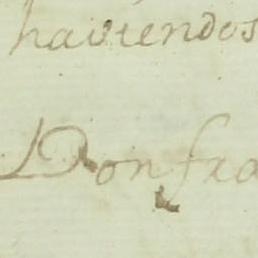 haviendos
Don fra